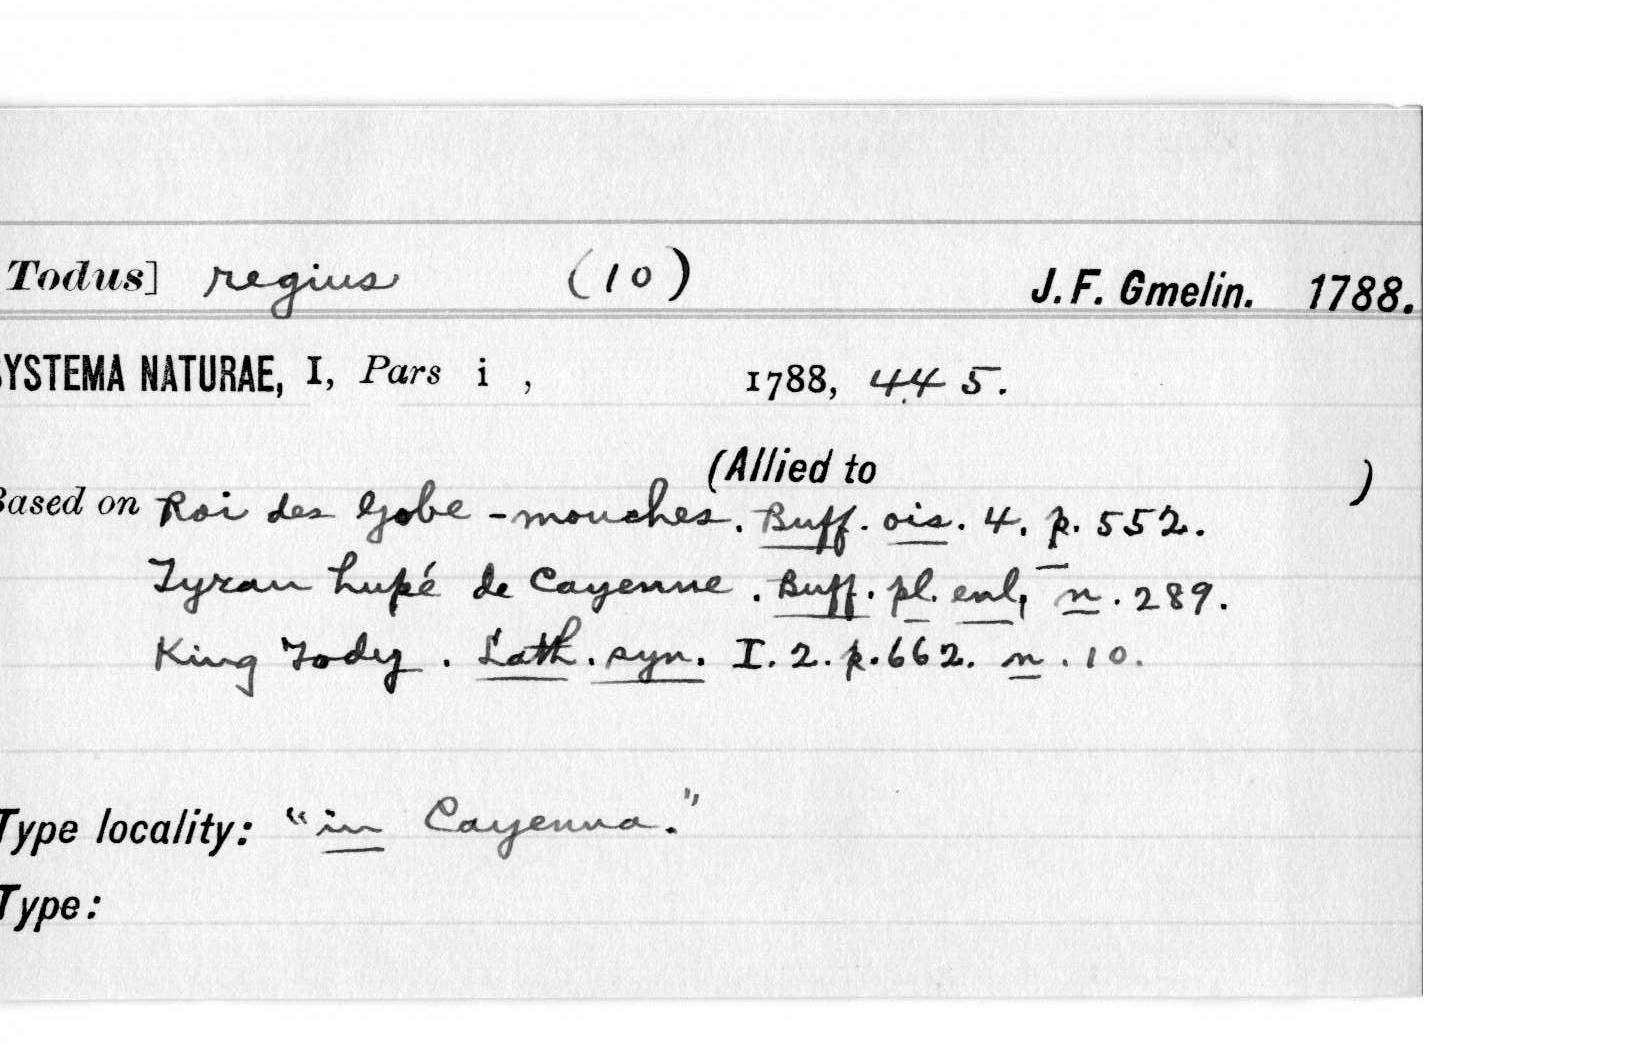 Todus] regius (10) J. F. Gmelin. 1788.
SYSTEMA NATURAE, I, Pars i , 1788, 445.
(Allied to )
Based on Roi des Gobe-mouches. Buff. ois. 4. p. 552.
Tyran hupé de Cayenne. Buff. pl. enl, n. 289.
King Tody. Lath. syn. I. 2. p. 662. n. 10.
Type locality: "in Cayenna."
Type: